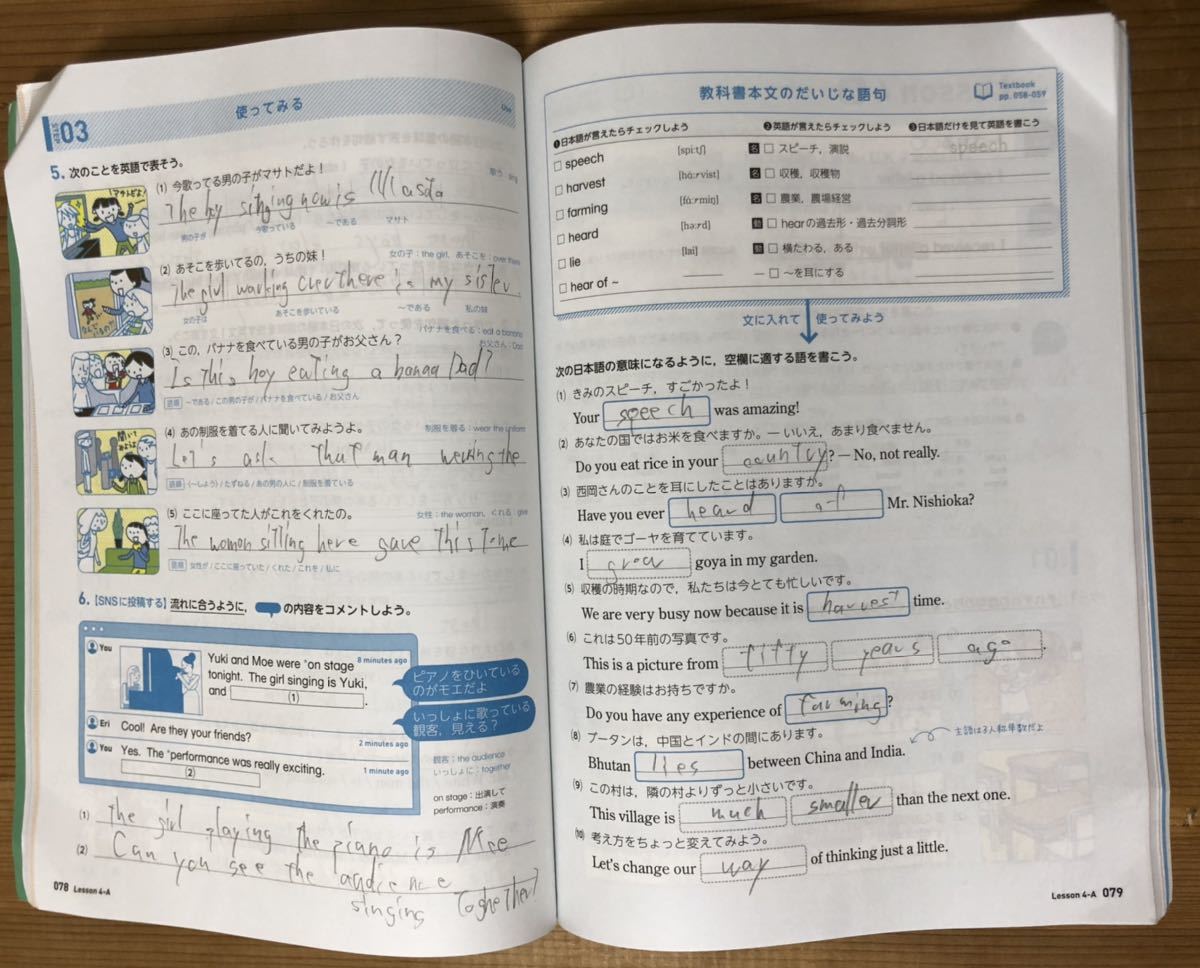 03
使ってみる
Use
5. 次のことを英語で表そう。
マサトだよ!
(1) 今歌ってる男の子がマサトだよ!
歌う:sing
The boy singing now is Masato.
男の子が 今歌っている ~である マサト
(2) あそこを歩いてるの,うちの妹!
女の子:the girl, あそこを:over there
The girl warking over there is my sister.
女の子は あそこを歩いている ~である 私の妹
バナナを食べる:eat a banana
(3) この,バナナを食べている男の子がお父さん?
お父さん:Dad
Is this boy eating a banaa Dad?
語順 ~である/この男の子が/バナナを食べている/お父さん
(4) あの制服を着てる人に聞いてみようよ。
制服を着る:wear the uniform
Let's ask that man werking the
語順 (~しよう)/たずねる/あの男の人に/制服を着ている
(5) ここに座ってた人がこれをくれたの。
女性:the woman, くれる:give
The women sitting here gave this to me
語順 女性が/ここに座っていた/くれた/これを/私に
6. 【SNSに投稿する】流れに合うように, の内容をコメントしよう。
You
8 minutes ago
Yuki and Moe were *on stage
tonight. The girl singing is Yuki,
and (1) .
ピアノをひいている
のがモエだよ
Eri Cool! Are they your friends?
2 minutes ago
いっしょに歌っている
観客,見える?
You Yes. The *performance was really exciting.
(2)
1 minute ago
観客:the audience
いっしょに:together
on stage:出演して
performance:演奏
(1) The girl playing the piano is Moe
(2) Can you see the audience
singing toghether?
078 Lesson 4-A
教科書本文のだいじな語句
Textbook
pp. 058-059
❶日本語が言えたらチェックしよう ❷英語が言えたらチェックしよう ❸日本語だけを見て英語を書こう
speech [spiːtʃ] 名 スピーチ,演説 speech
harvest [hɑ́ːrvist] 名 収穫,収穫物
farming [fɑ́ːrmiŋ] 名 農業,農場経営
heard [həːrd] 動 hearの過去形・過去分詞形
lie [lai] 動 横たわる,ある
hear of ~ — ~を耳にする
文に入れて 使ってみよう
次の日本語の意味になるように,空欄に適する語を書こう。
(1) きみのスピーチ,すごかったよ!
Your speech was amazing!
(2) あなたの国ではお米を食べますか。— いいえ,あまり食べません。
Do you eat rice in your country? — No, not really.
(3) 西岡さんのことを耳にしたことはありますか。
Have you ever heard of Mr. Nishioka?
(4) 私は庭でゴーヤを育てています。
I grow goya in my garden.
(5) 収穫の時期なので,私たちは今とても忙しいです。
We are very busy now because it is harvest time.
(6) これは50年前の写真です。
This is a picture from fifty years ago.
(7) 農業の経験はお持ちですか。
Do you have any experience of farming?
(8) ブータンは,中国とインドの間にあります。
主語は3人称単数だよ
Bhutan lies between China and India.
(9) この村は,隣の村よりずっと小さいです。
This village is much smaller than the next one.
(10) 考え方をちょっと変えてみよう。
Let's change our way of thinking just a little.
Lesson 4-A 079